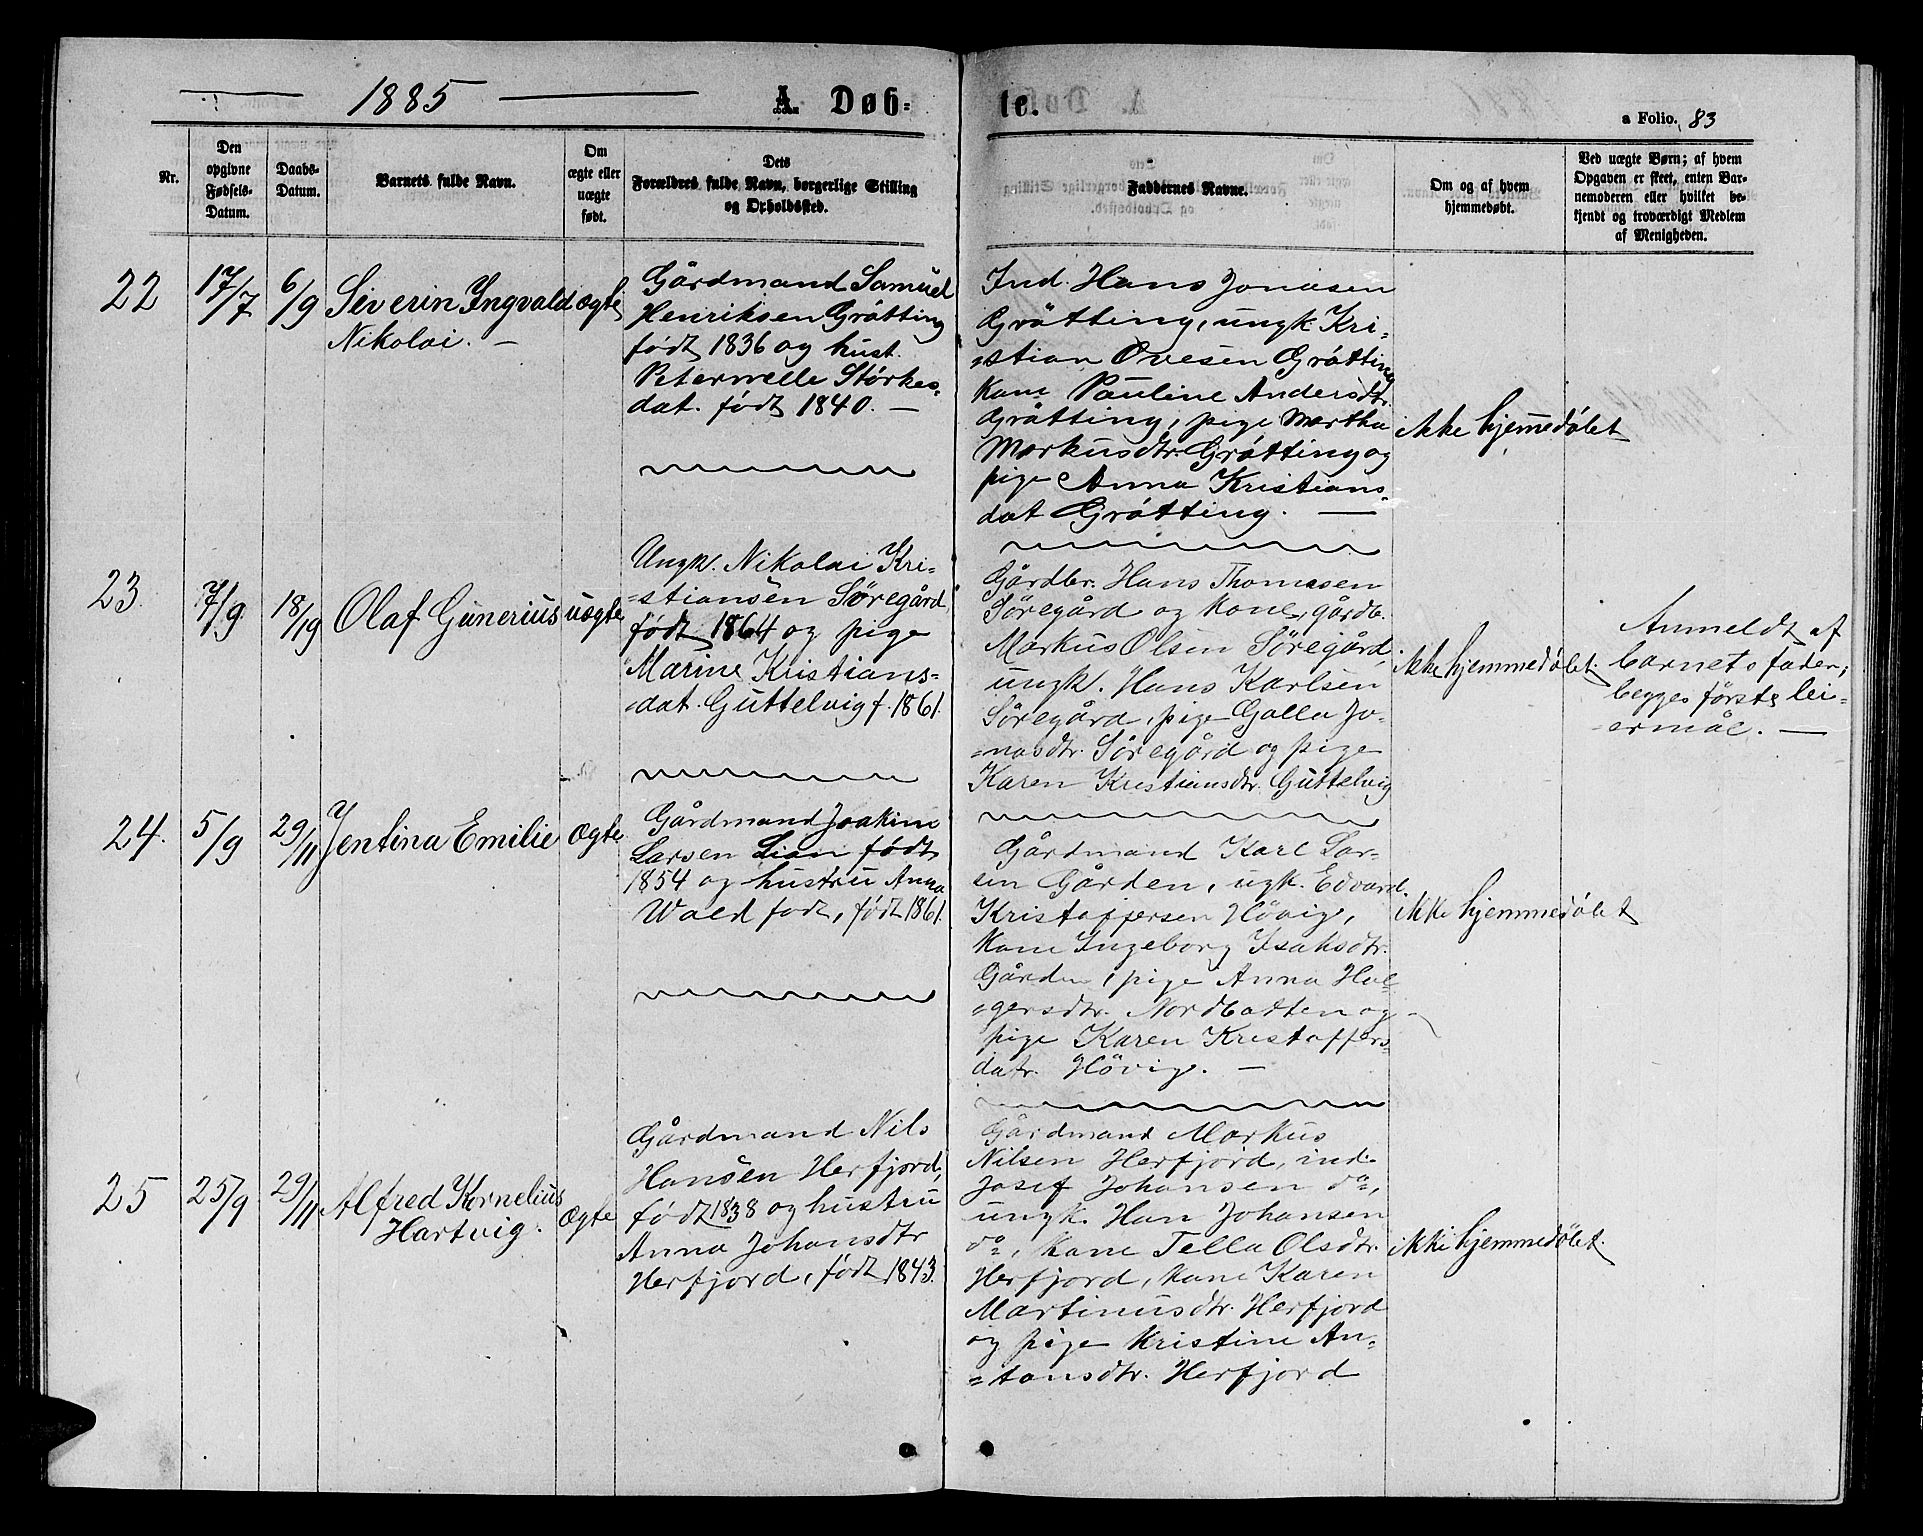 1885
A. Døb-
te.
a Folio. 83
Nr.
Den opgivne Fødsels-Datum.
Daabs-Datum.
Barnets fulde Navn.
Om ægte eller uægte født.
Dets Forældres fulde Navn, borgerlige Stilling og Opholdssted.
Faddernes Navne.
Om og af hvem hjemmedøbt.
Ved uægte Børn; af hvem Opgaven er skeet, enten Barnemoderen eller hvilket bekjendt og troværdigt Medlem af Menigheden.
22
17/7
6/9
Severin Ingvald
Nikolai. —
ægte
Gårdmand Samuel
Henriksen Gråtting
født 1836 og hust.
Peternelle Størkes-
dat. født 1840. —
Ind. Hans Jonasen
Gråtting, ungk. Kri-
=stian Ovesen Gråtting
Kone Pauline Andersdtr.
Gråtting, pige Martha
Markusdtr. Gråtting og
pige Anna Kristians-
dat Gråtting. —
ikke hjemmedøbt
23.
7/9
18/19
Olaf Gunerius
uægte
Ungk. Nikolai Kri-
=stiansen Söregård,
født 1864 og pige
Marine Kristians=
=dat. Guttelvig f. 1861.
Gårdbr. Hans Thomasen
Söregård og kone, gårdb.
Markus Olsen Söregård,
ungk. Hans Karlsen
Söregård, pige Golla Jo-
=nasdtr. Söregård og pige
Karen Kristiansdtr. Guttelvig
ikke hjemmedøbt.
Anmeldt af
barnets fader;
begges første lei-
-ermål. —
24.
5/9
29/11
Jentina Emilie
Ægte
Gårdmand Joakim
Larsen Lian født
1854 og hustru Anna
født, født 1861.
Gårdmand Karl Lar-
sen Gården, ugk. Edvard
Kristoffersen Hövig,
kone Ingeborg Isaksdtr.
Gården, pige Anna Hol-
=gersdtr. Nordbotten og
pige Karen Kristoffers-
datr. Hövig. —
ikke hjemmedøbt
25
25/9
29/11
Alfred Kornelius
Hartvig.
Ægte
Gårdmand Nils
Hansen Herfjord,
født 1838 og hustru
Anna Johansdtr
Herfjord, født 1843.
Gårdmand Markus
Nilsen Herfjord, ind.
Josef Johansen do,
ungk. Han Johansen
do, kone Tella Olsdtr.
Herfjord, kone Karen
Martinusdtr. Herfjord
og pige Kristine An-
=tonsdtr. Herfjord
ikke hjemmedøbt.